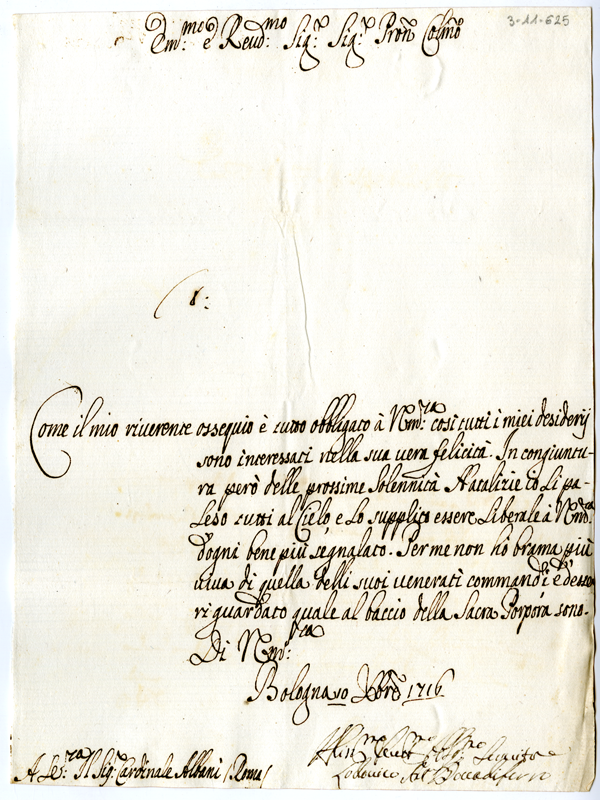 3-11-625
Em:mo e Reud:mo Sig:r Sig:r Pron Colmo
Come il mio riverente ossequio è tutto obbligato à V.Em:za così tutti i miei desiderij
sono interessati nella sua vera felicità. In congiuntu-
ra però delle prossime Solennità Natalizie io li pa-
leso tutti al Cielo, e lo supplico essere Liberale à V.Em:za
d'ogni bene più segnalato. Per me non hò brama più
viva di quella delli suoi venerati commandi, e d'esser
riguardato quale al baccio della Sacra Porpora sono.
Di V.Em:za
Bologna 10 Xbre 1716
A S.E:za Il Sig:r Cardinale Albani (Roma)
Lodovico Boccadiferro